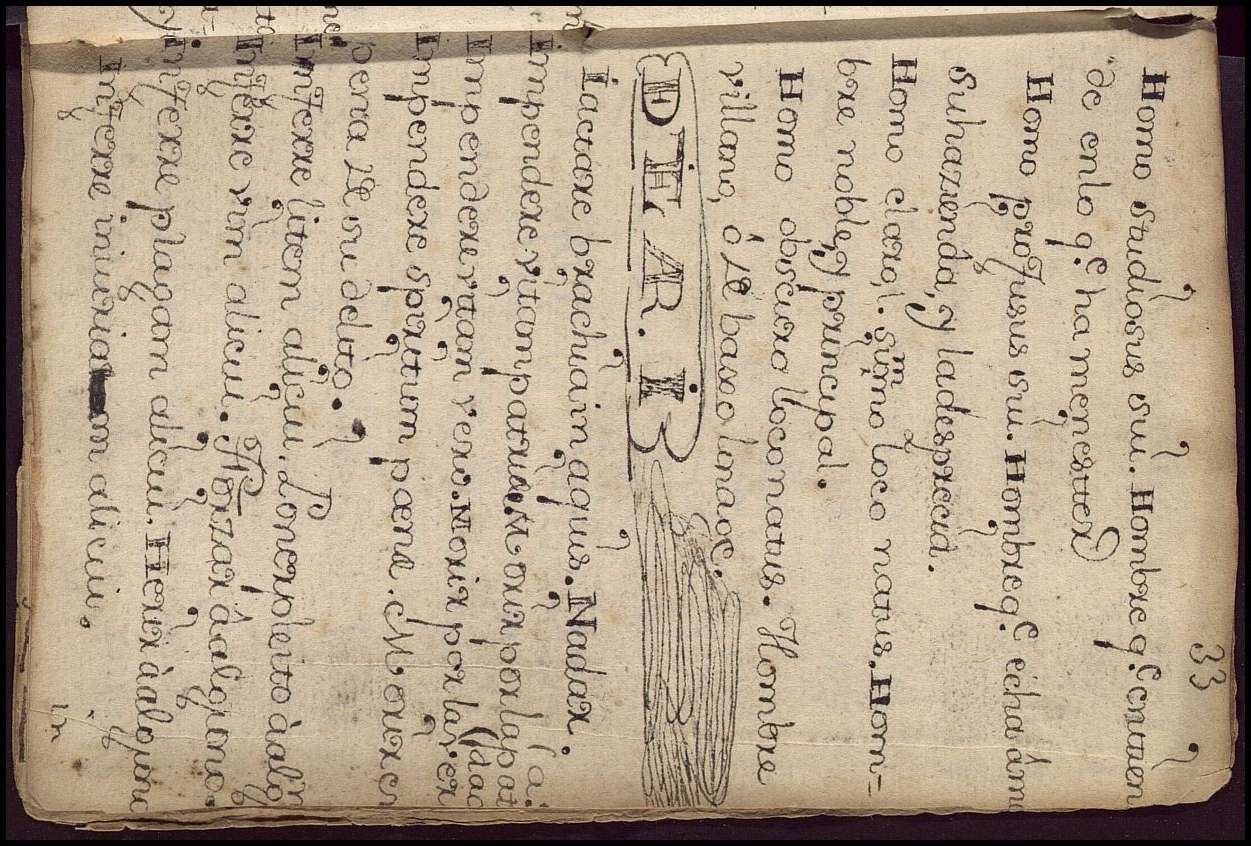 33
Homo studiosus sui. Hombre q.e entien
de en lo q.e ha menester
Homo profusus sui. Hombre q.e echa á m
su hazienda, y la desprecia.
Homo claro, l. summo loco natus. Hom-
bre noble, y principal.
Homo obscuro loco natus. Hombre
villano, ó de baxo linaoe.
DE AR. I
Iactare brachia in aquis. Nadar.
Impendere vitam patriæ. Morir por la pat
Impendere vitam vero. Morir por la ver
(dad
Impendere spiritum pæne. Morir en
pena de su delito.
Inferre litem alicui. Poner pleito à alg
Inferre vim alicui. Forzar â alguno.
Inferre plagam alicui. Herir à alguno
Inferre iniuriam alicui.
in